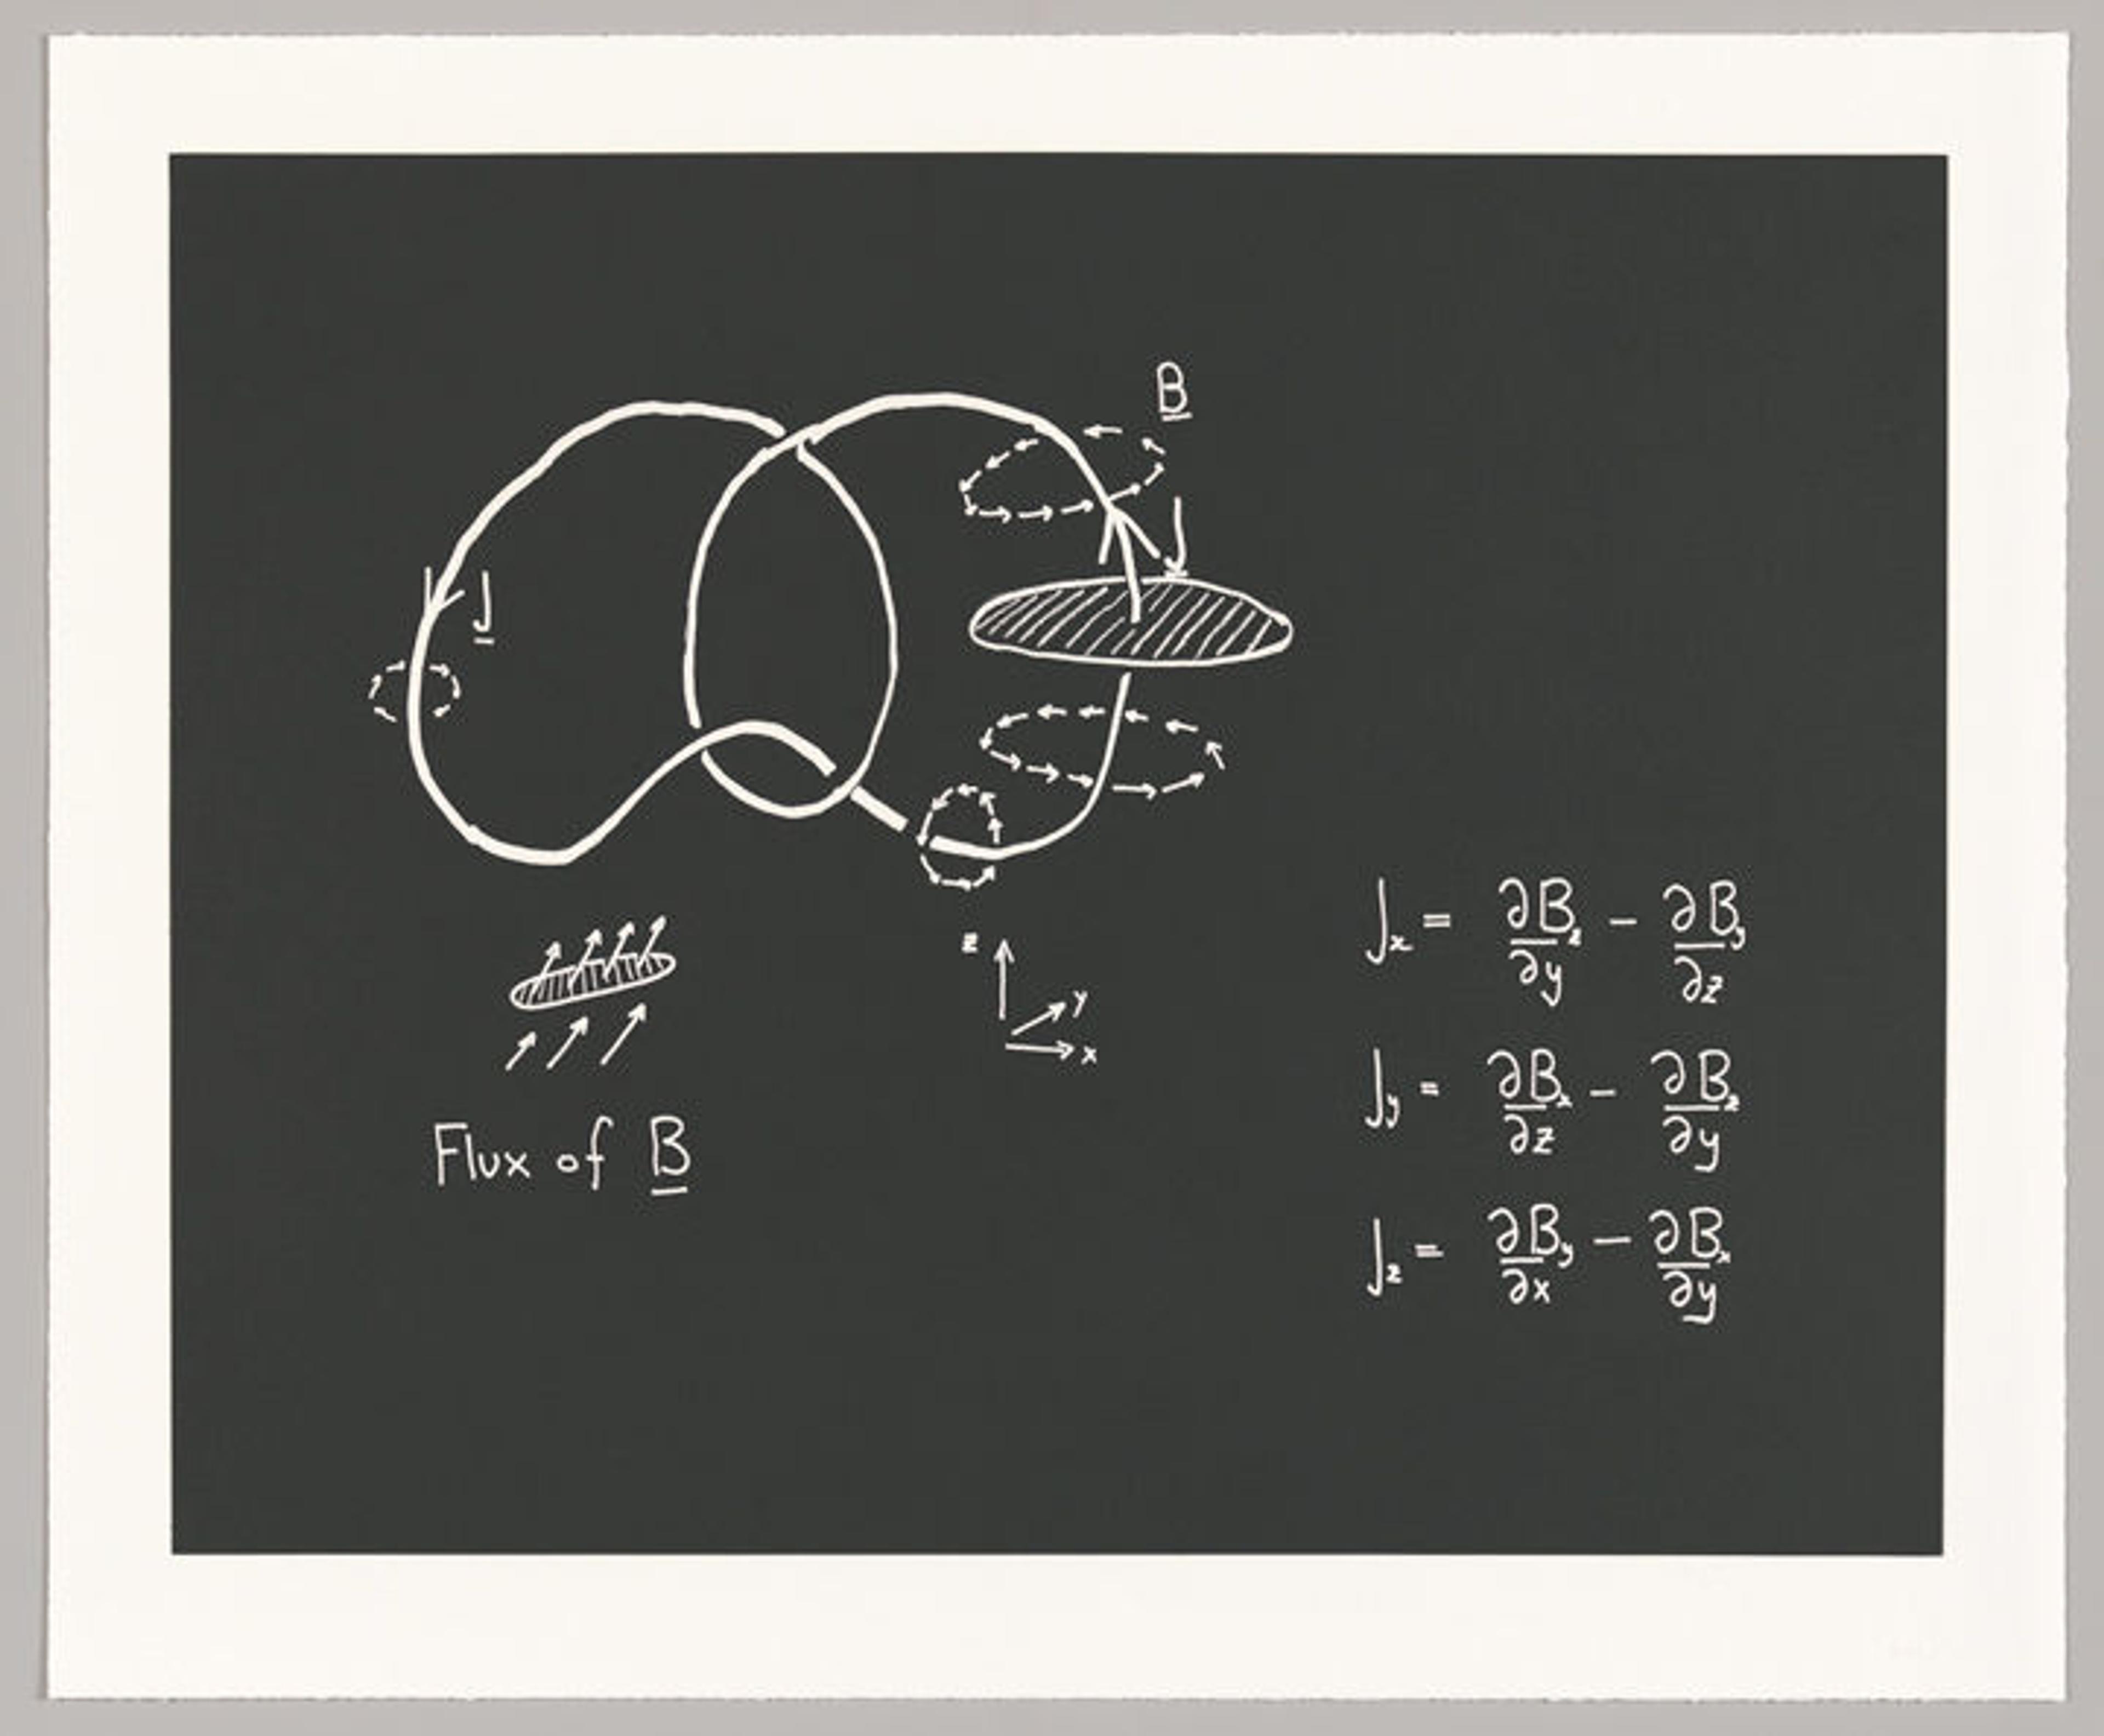 B
J
z
y
x
Flux of B
Jx = ∂Bz/∂y − ∂By/∂z
Jy = ∂Bx/∂z − ∂Bz/∂y
Jz = ∂By/∂x − ∂Bx/∂y